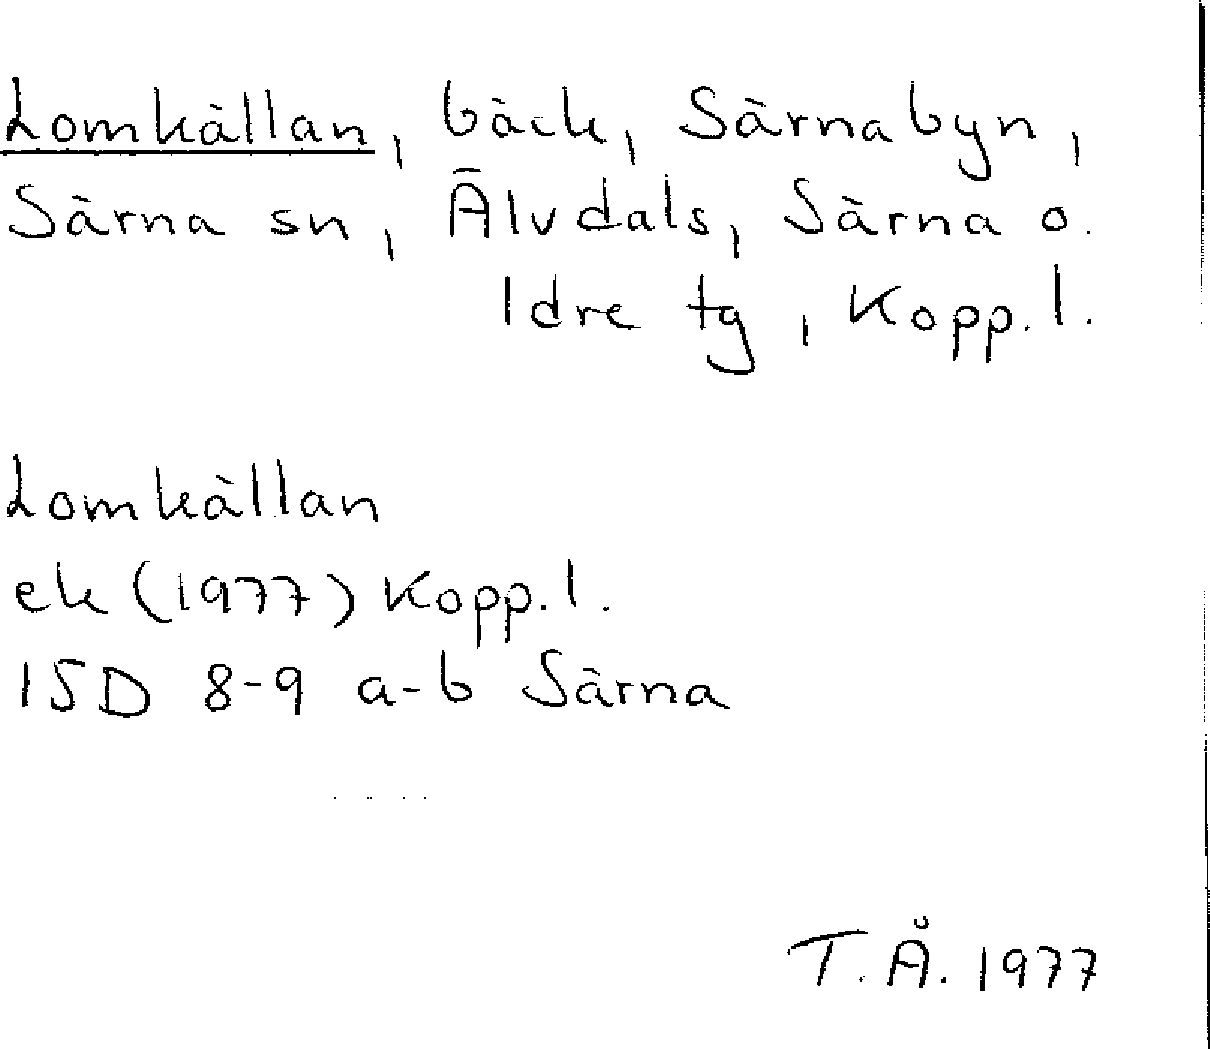 Lomkällan, bäck, Särnabyn,
Särna sn, Älvdals, Särna o.
Idre tg, Kopp. l.
Lomkällan
ek (1977) Kopp. l.
15D 8-9 a-b Särna
T.Å. 1977